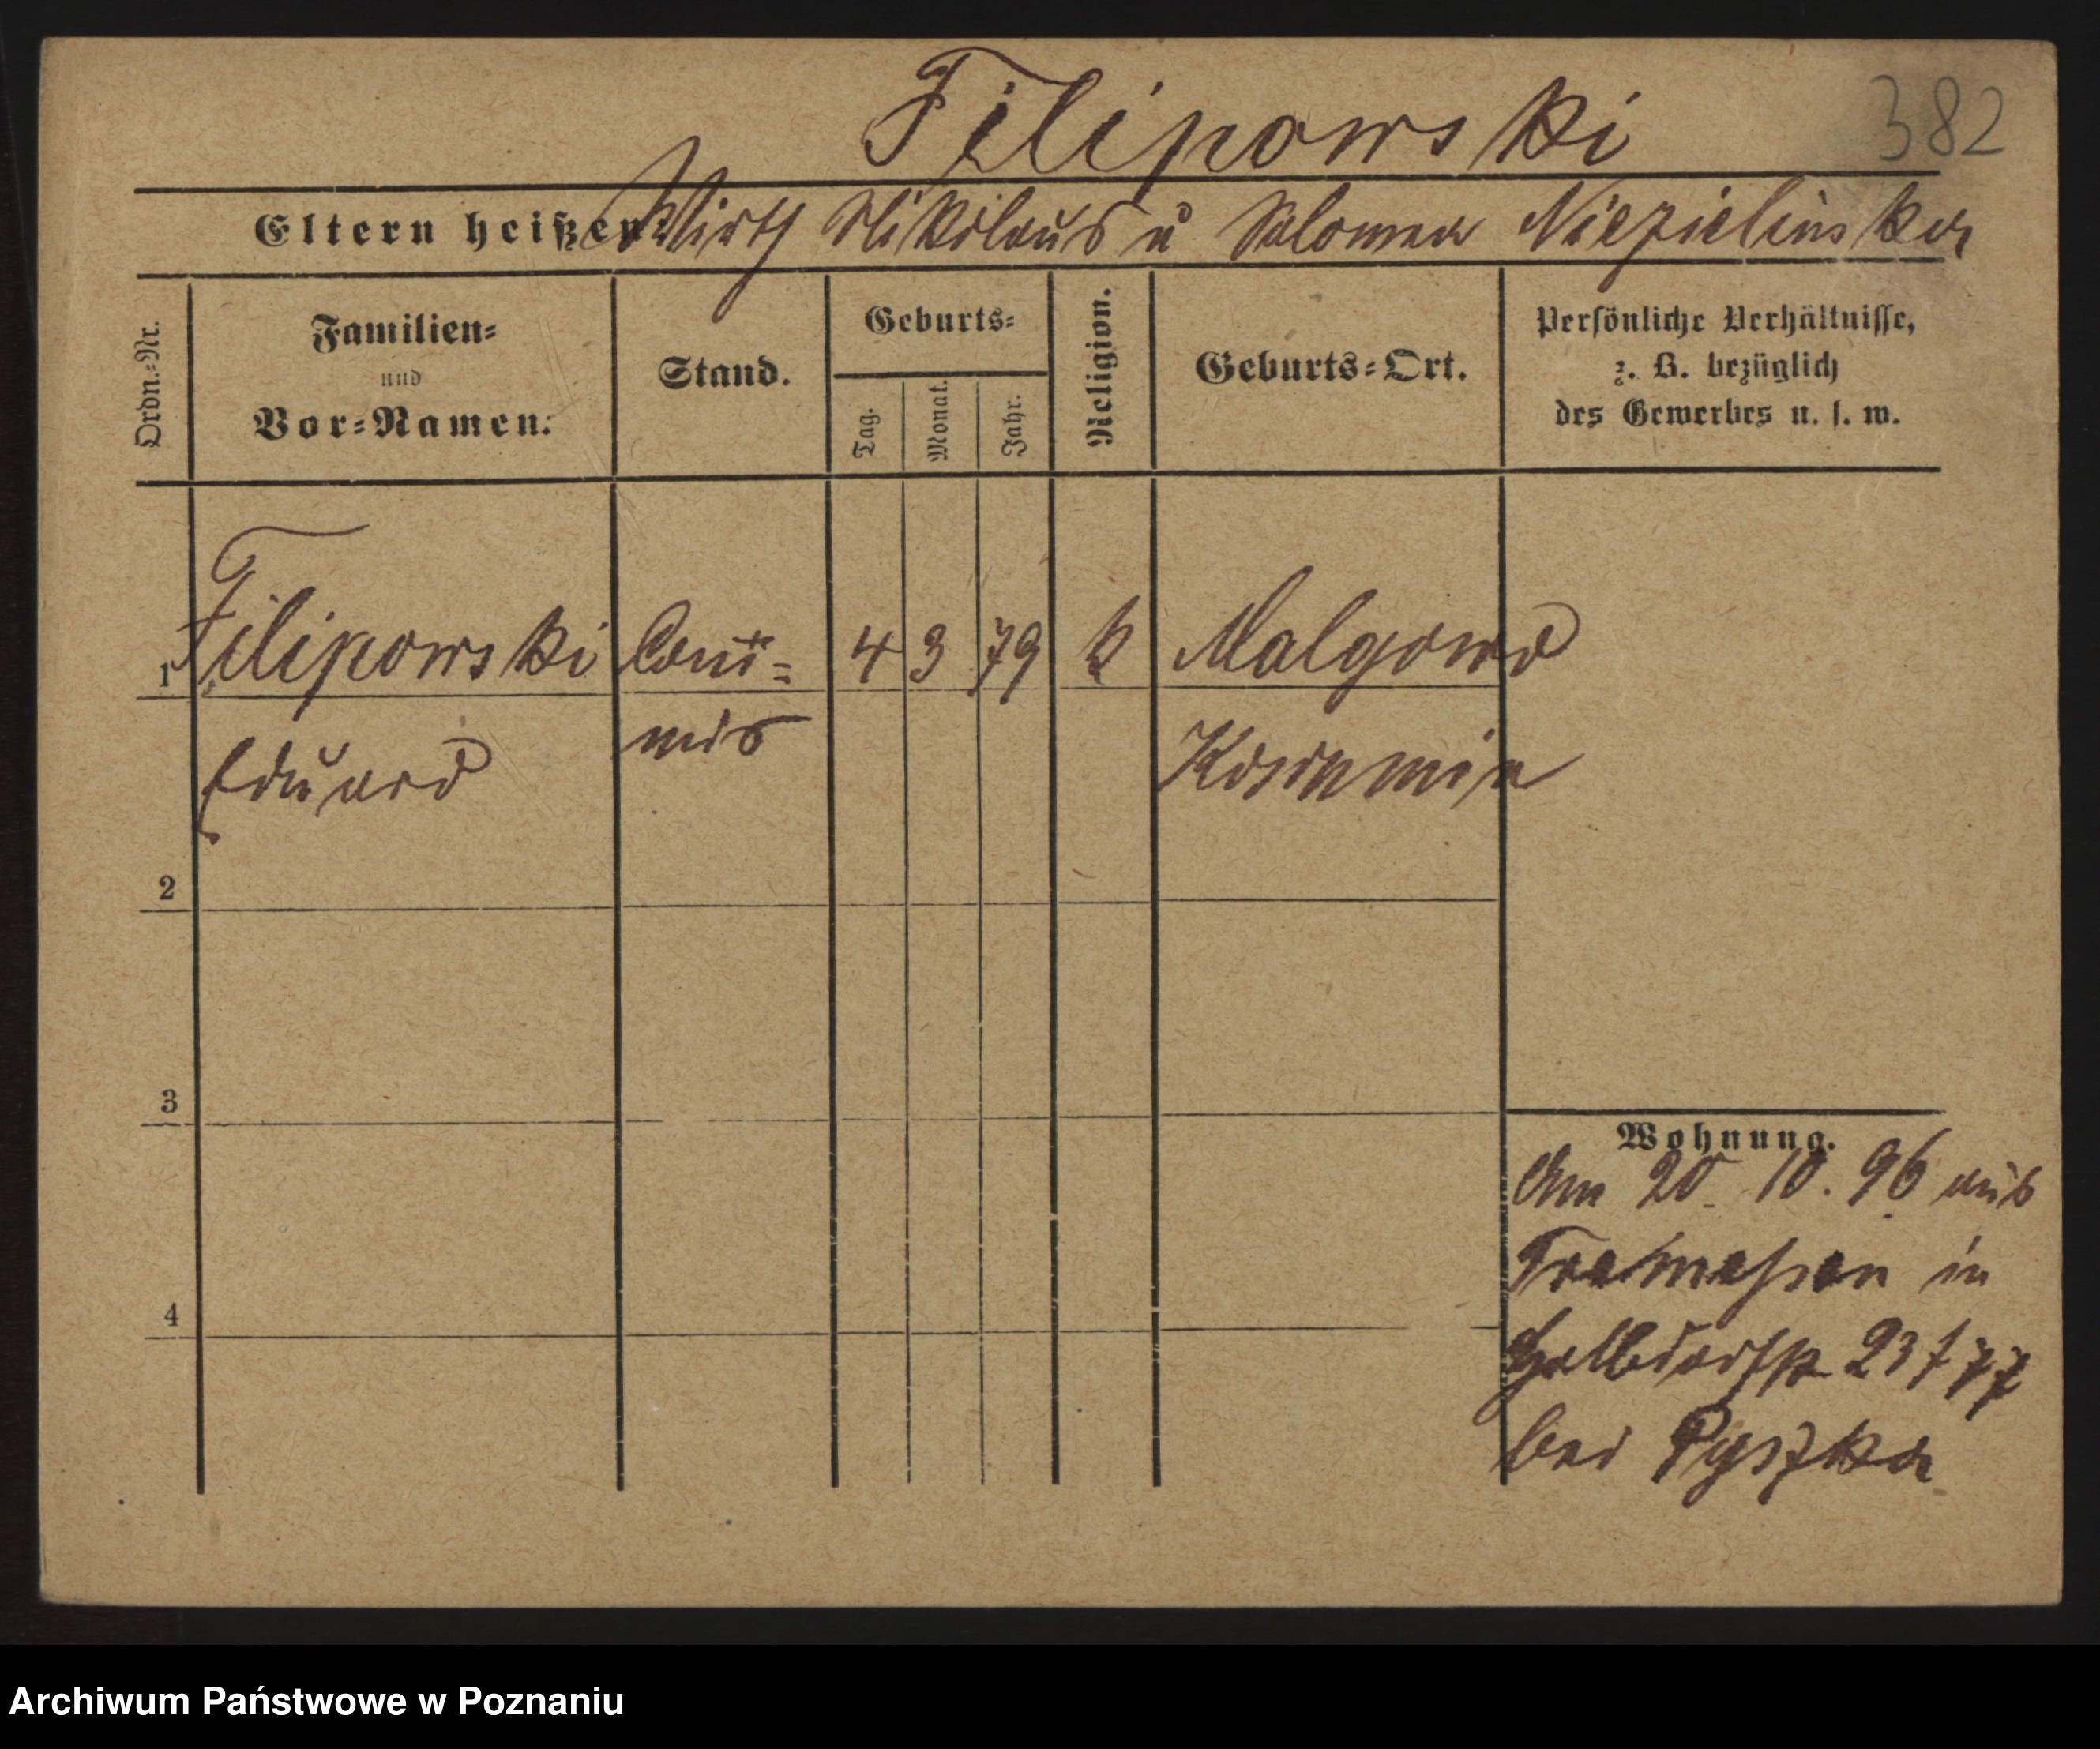 Filipowski 382
Eltern heißen: Wirth Nikolaus u Salomea Niezielinska
Ordn.-Nr.
Familien-
und
Vor-Namen.
Stand.
Geburts-
Tag.
Monat.
Jahr.
Religion.
Geburts-Ort.
Persönliche Verhältnisse,
z. B. bezüglich
des Gewerbes u. s. w.
1 Filipowski Com- 4 3 79 k Malgowo
Eduard mis
2
3
4
Wohnung.
Am 20. 10. 96 aus
Tremessen in
23/77
bei Pyszka
Archiwum Państwowe w Poznaniu